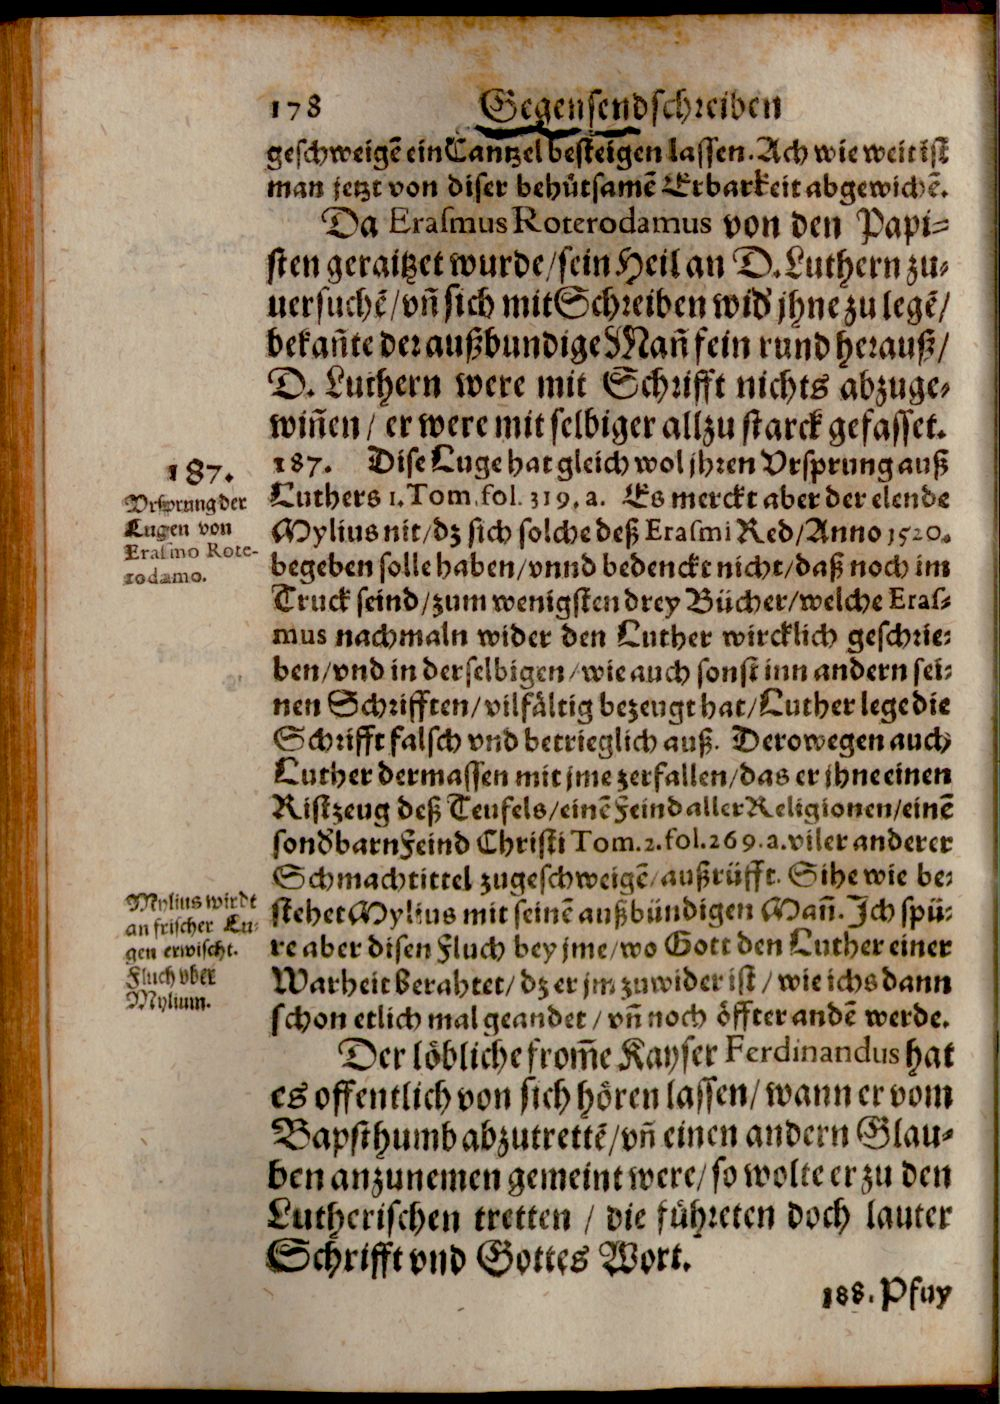 178 Gegensendschreiben
geschweigẽ ein Cantzel besteigen lassen. Ach wie weit ist
man jetzt von diser behůtsamẽ Erbarkeit abgewichẽ.
Da Erasmus Roterodamus von den Papi-
sten geraitzet wurde/sein Heil an D. Luthern zu-
uersuchẽ/vñ sich mit Schreiben wid' jhne zu legẽ/
bekañte der außbundige Mañ fein rund herauß/
D. Luthern were mit Schrifft nichts abzuge-
wiñen / er were mit selbiger allzu starck gefasset.
187. Dise Luge hat gleich wol jhren Vrsprung auß
Luthers 1. Tom. fol. 319. a. Es merckt aber der elende
Mylius nit/dz sich solche deß Erasmi Red/Anno 1520.
begeben solle haben/vnnd bedenckt nicht/daß noch im
Truck seind/zum wenigsten drey Bücher/welche Eras-
mus nachmaln wider den Luther wircklich geschrie-
ben/vnd in derselbigen/wie auch sonst inn andern sei-
nen Schrifften/vilfåltig bezeugt hat/Luther lege die
Schrifft falsch vnd betrieglich auß. Derowegen auch
Luther dermassen mit jme zerfallen/das er jhne einen
Ristzeug deß Teufels/einẽ Feind aller Religionen/einẽ
sond'barn Feind Christi Tom. 2. fol. 269. a. viler anderer
Schmachtittel zugeschweigẽ/außrüfft. Sihe wie be-
stehet Mylius mit seinẽ außbündigen Mañ. Jch spü-
re aber disen Fluch bey jme/wo Gott den Luther einer
Warheit berahtet/dz er jm zuwider ist / wie ichs dann
schon etlich mal geandet / vñ noch öffter andẽ werde.
Der löbliche from̃e Kayser Ferdinandus hat
es offentlich von sich hören lassen/wann er vom
Bapsthumb abzutrettẽ/vñ einen andern Glau-
ben anzunemen gemeint were/so wolte er zu den
Lutherischen tretten / die fůhreten doch lauter
Schrifft vnd Gottes Wort.
188. Pfuy
187.
Vrsprung der
Lugen von
Erasmo Rote-
rodamo.
Mylius wirdt
an frischer Lu-
gen erwischt.
Fluch vber
Mylium.